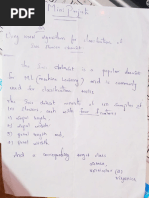 Mini project
Using naive algorithm for classification of
Iris flower dataset
The Iris dataset is a popular dataset
for ML (machine learning) and is commonly
used for classification tasks.
The Iris dataset consists of 150 samples of
Iris flowers each with four features
1) sepal length
2) sepal width
3) petal length and
4) petal width
And a corresponding target class
setosa,
versicolor (or)
virginica